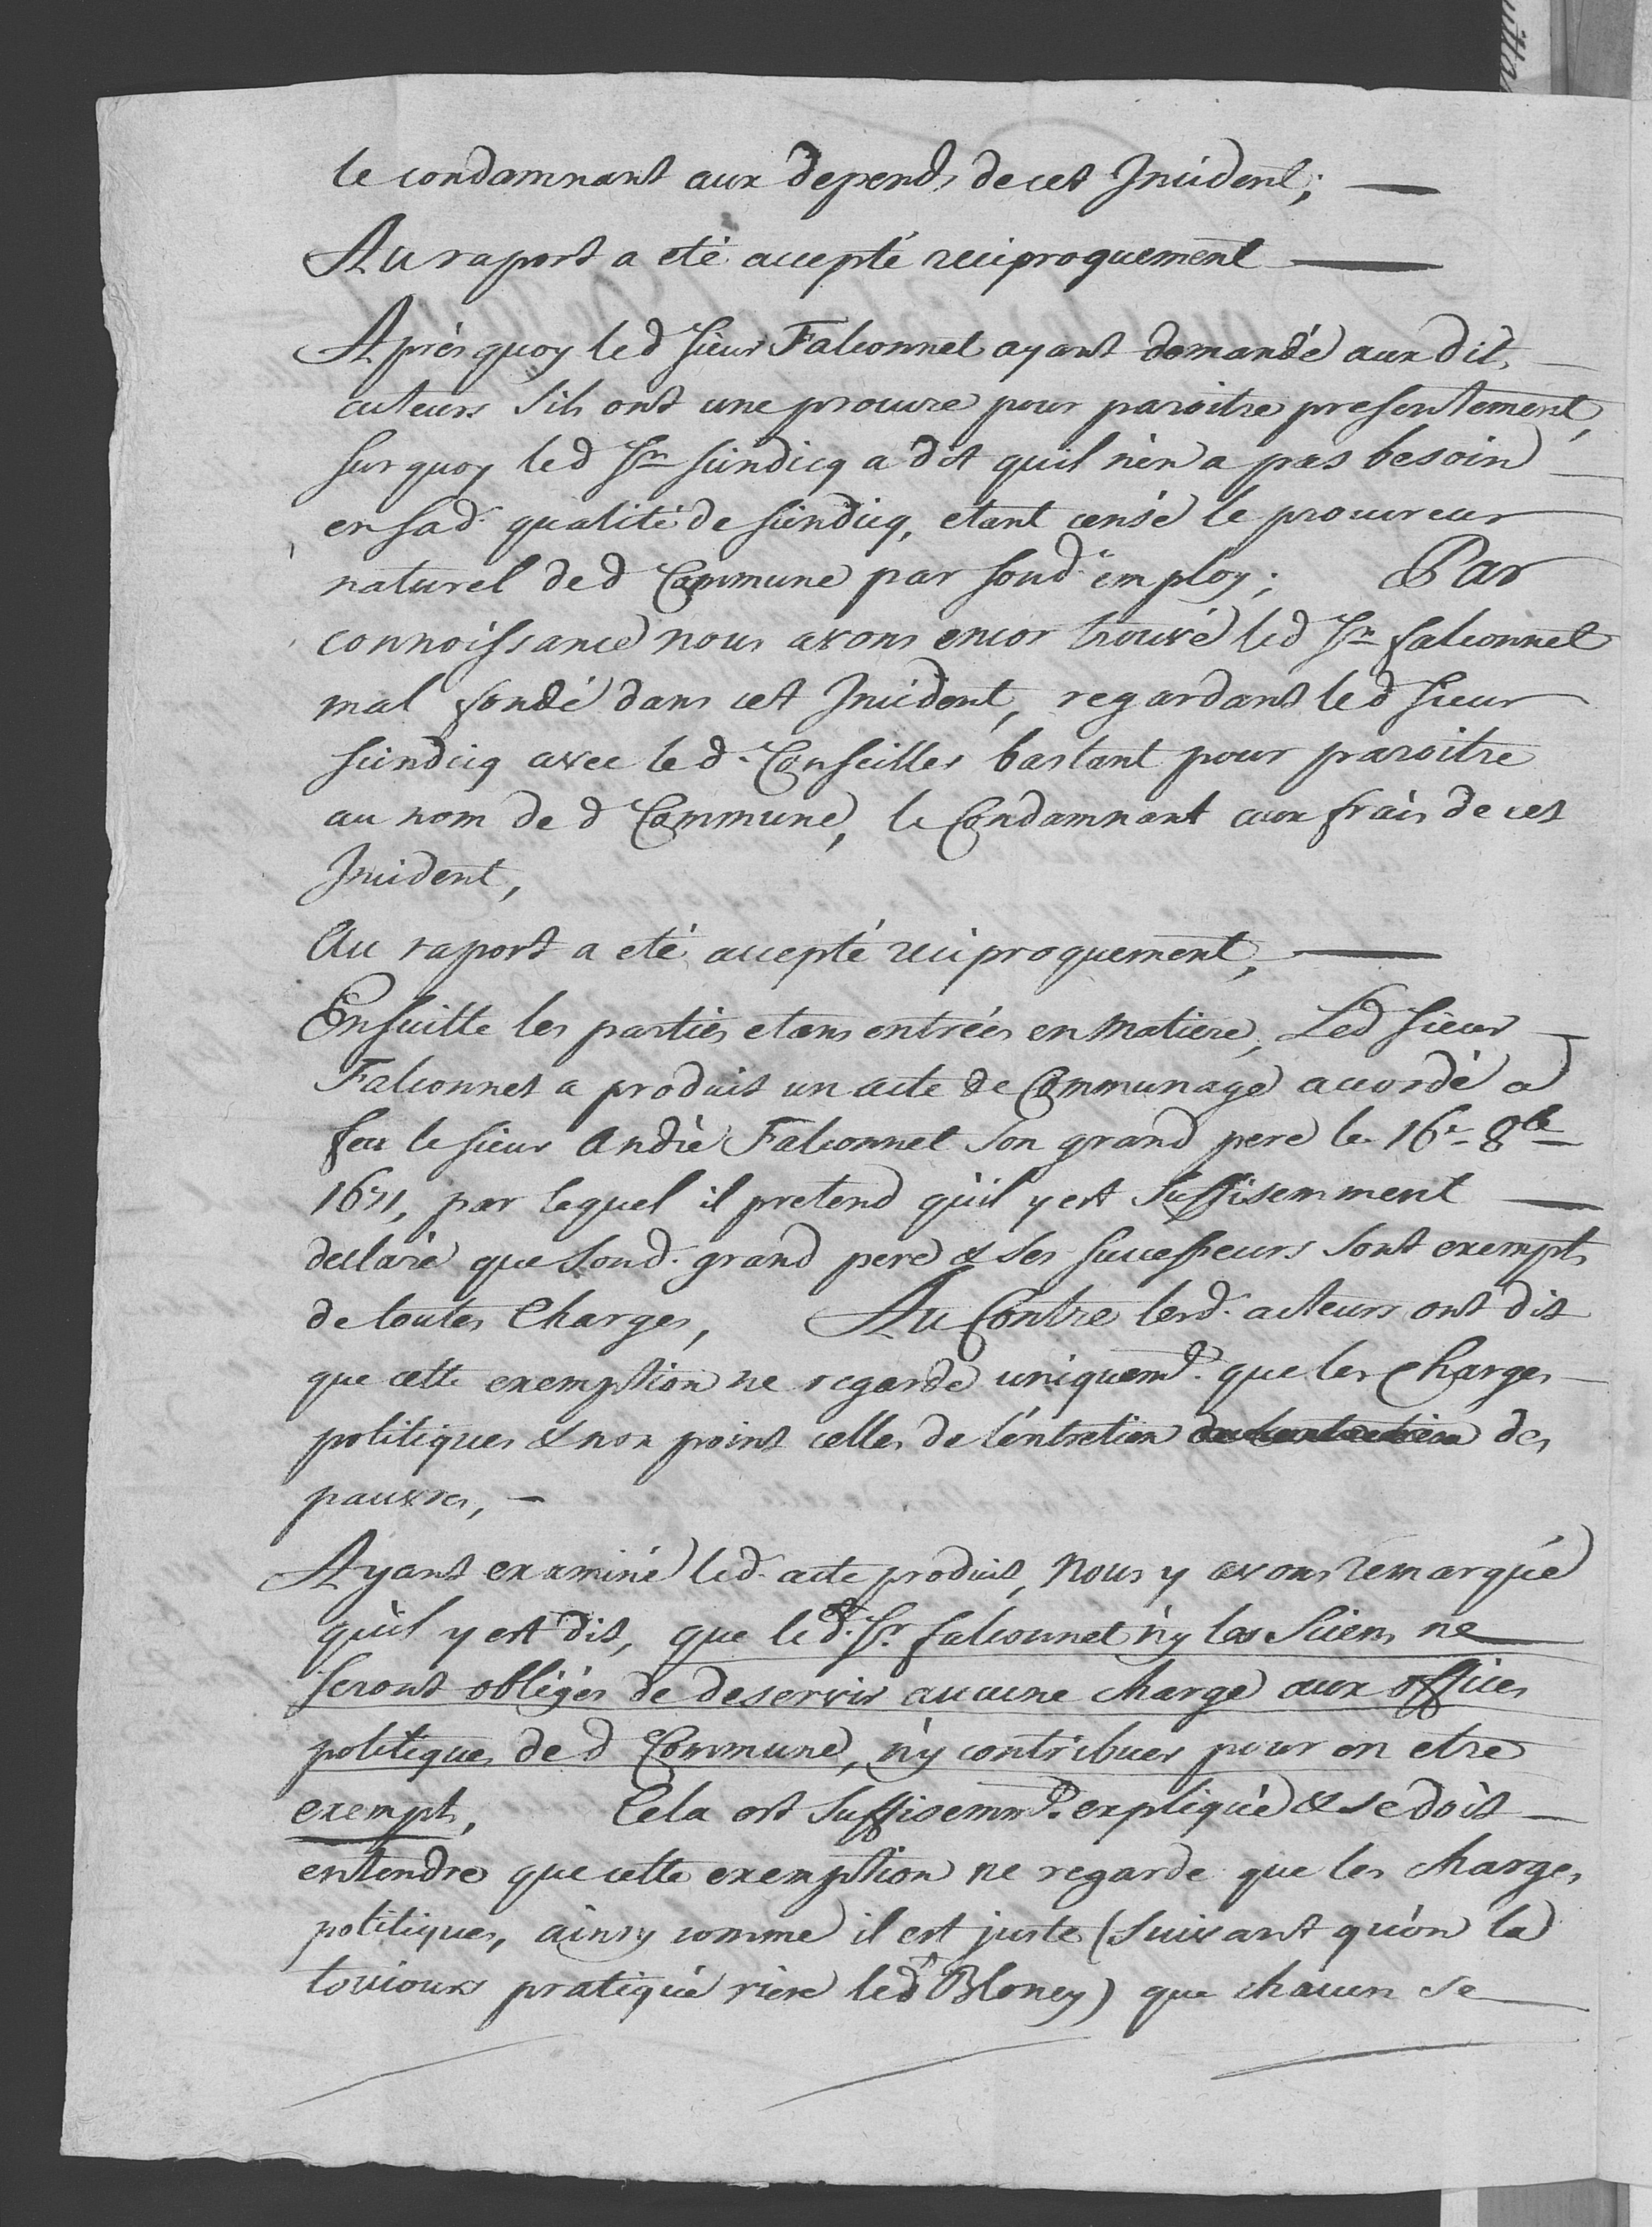 le condamnant aux depends de cet Incident;
Au raport a eté accepté reciproquement
Après quoy led Sieur Falconnet ayant demandé aux dits
acteurs s'ils ont une procure pour paroitre presentement,
surquoy led Sr Sindicq a dit quil n'en a pas besoin
en sad. qualité de Sindicq, etant censé le procureur
naturel de d Commune par sond employ; Par
connoissance nous avons encor trouvé led Sr falconnet
mal fondé dans cet Incident, regardant led Sieur
Sindicq avec led. Conseiller bastant pour paroitre
au nom de d Commune, le Condamnant aux frais de cet
Incident,
Au raport a eté accepté reciproquement,
Ensuitte les parties etans entrées en matiere, Led Sieur
Falconnet a produit un acte de Communage accordé a
feu le sieur André Falconnet son grand pere le 16e 8bre
1671, par lequel il pretend qu'il y est suffisemment
declaré que sond. grand pere & ses successeurs sont exempts
de toutes Charges, Au Contre lesd. acteurs ont dit
que cette exemption ne regarde uniquemt. que les Charges
politiques & non point celles de l'entretien de l'entretien des
pauvres,
Ayant examiné led. acte produit, nous y avons remarqué
qu'il y est dit, que led. Sr. falconnet n'y les Siens ne
seront obligés de deservir aucune charge aux offices
politiques de d Commune, n'y contribuer pour en etre
exempts, Cela est suffisemmt. expliqué & se doit
entendre que cette exemption ne regarde que les charges
politiques, ainsy comme il est juste (suivant qu'on la
toujours pratiqué riere led Bloney) que chacun se